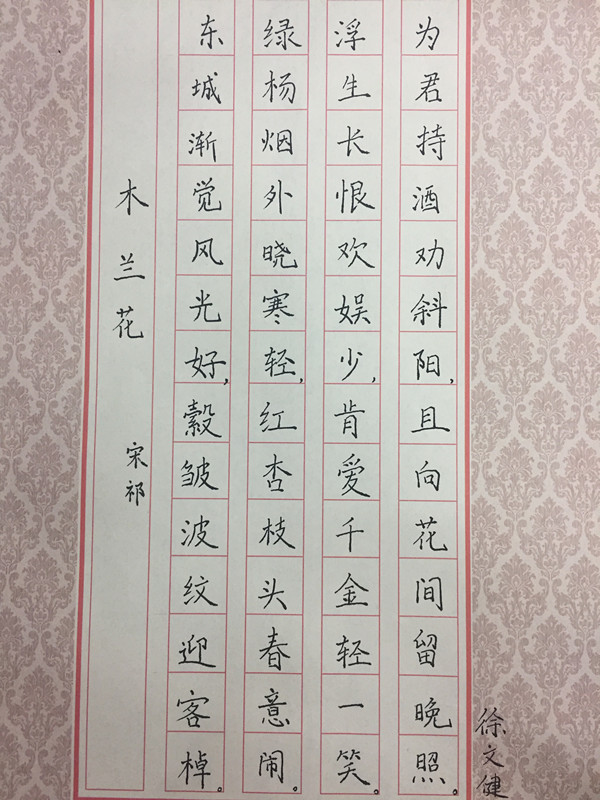 木兰花
宋祁
东城渐觉风光好,縠皱波纹迎客棹。
绿杨烟外晓寒轻,红杏枝头春意闹。
浮生长恨欢娱少,肯爱千金轻一笑。
为君持酒劝斜阳,且向花间留晚照。
徐文健